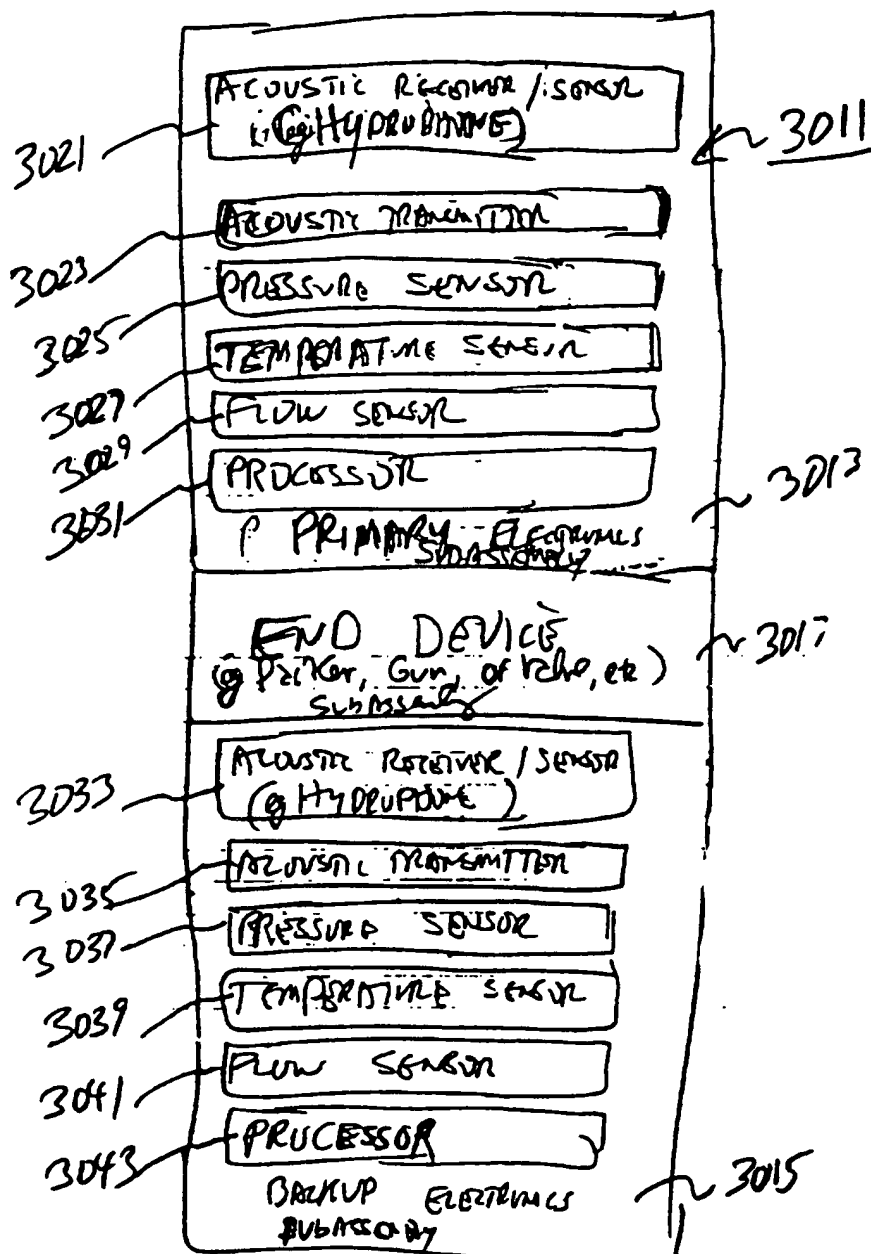 ACOUSTIC RECEIVER / SENSOR
(eg HYDROPHONE)
3021
3011
ACOUSTIC TRANSMITTER
3023
PRESSURE SENSOR
3025
TEMPERATURE SENSOR
3027
FLOW SENSOR
3029
PROCESSOR
3031
3013
PRIMARY ELECTRONICS
SUBASSEMBLY
END DEVICE
3017
(eg Packer, Gun, or Valve, etc)
SubAssembly
ACOUSTIC RECEIVER / SENSOR
(eg HYDROPHONE)
3033
ACOUSTIC TRANSMITTER
3035
PRESSURE SENSOR
3037
TEMPERATURE SENSOR
3039
FLOW SENSOR
3041
PROCESSOR
3043
BACKUP ELECTRONICS
3015
SUBASSEMBLY